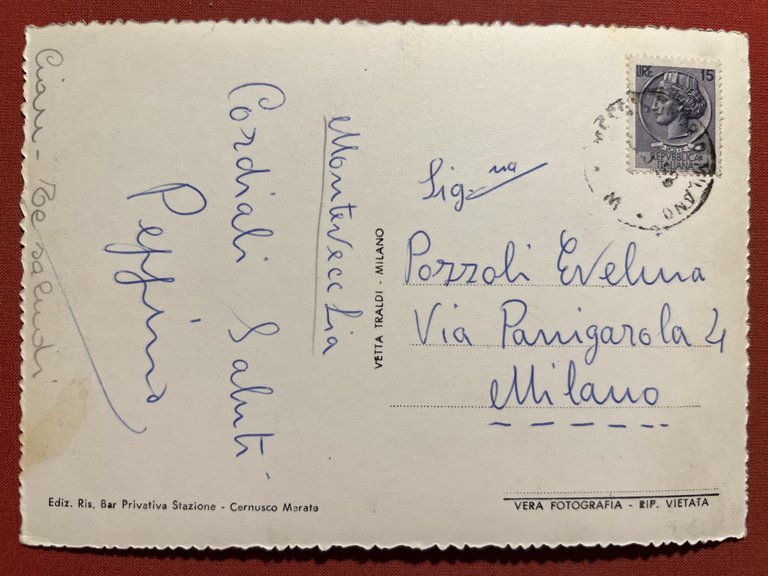 Montevecchia
Cordiali Saluti
Peppino
saludi
LIRE 15
POSTE
REPVBBLICA
ITALIANA
MILANO
Sig.na
Pozzoli Evelina
Via Panigarola 4
Milano
VETTA TRALDI - MILANO
Ediz. Ris. Bar Privativa Stazione - Cernusco Merate
VERA FOTOGRAFIA - RIP. VIETATA